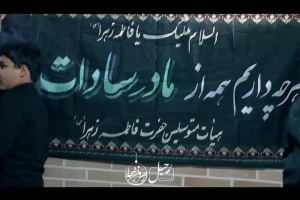 السلام علیک یا فاطمه زهرا (س)
هرچه داریم همه از مادر سادات
هیأت متوسلین حضرت فاطمه زهرا (س)